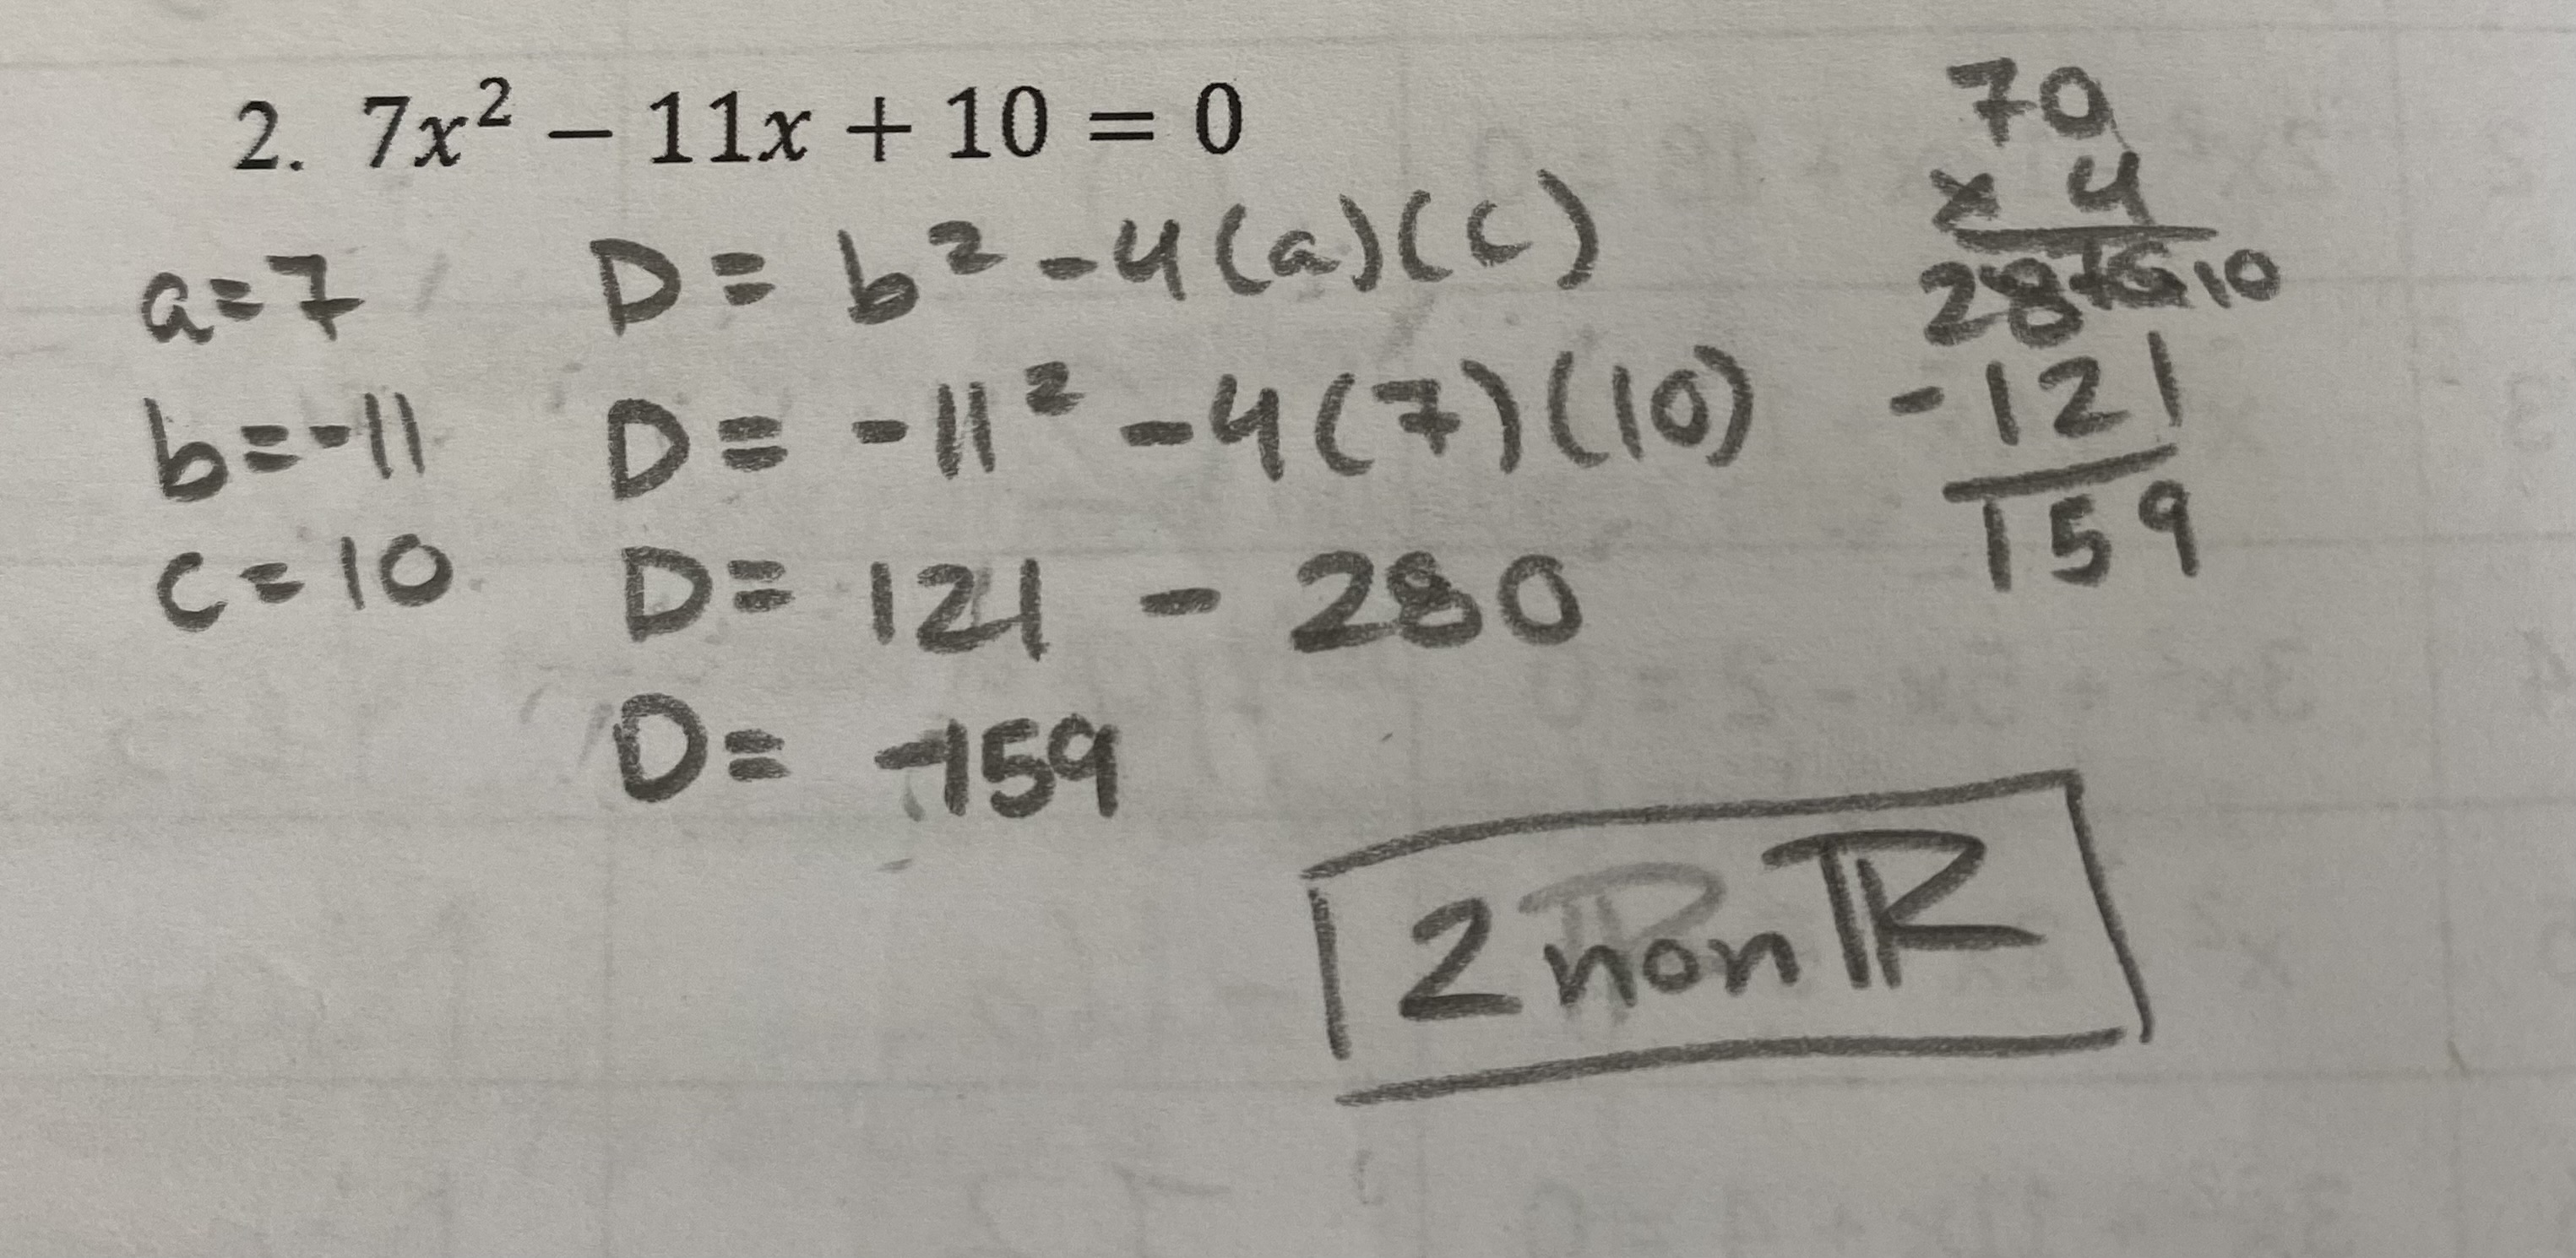 2. 7x² − 11x + 10 = 0
a=7
b=-11
c=10
D= b² -4(a)(c)
D= -11² -4(7)(10)
D= 121 - 280
D= -159
70
x 4
28 10
-121
159
2 non ℝ